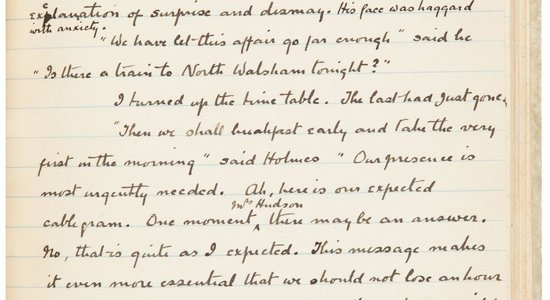 explanation of surprise and dismay. His face was haggard
with anxiety.
"We have let this affair go far enough" said he
"Is there a train to North Walsham tonight?"
I turned up the time table. The last had just gone.
"Then we shall breakfast early and take the very
first in the morning" said Holmes "Our presence is
most urgently needed. Ah, here is our expected
cablegram. One moment, Mrs Hudson there may be an answer.
No, that is quite as I expected. This message makes
it even more essential that we should not lose an hour